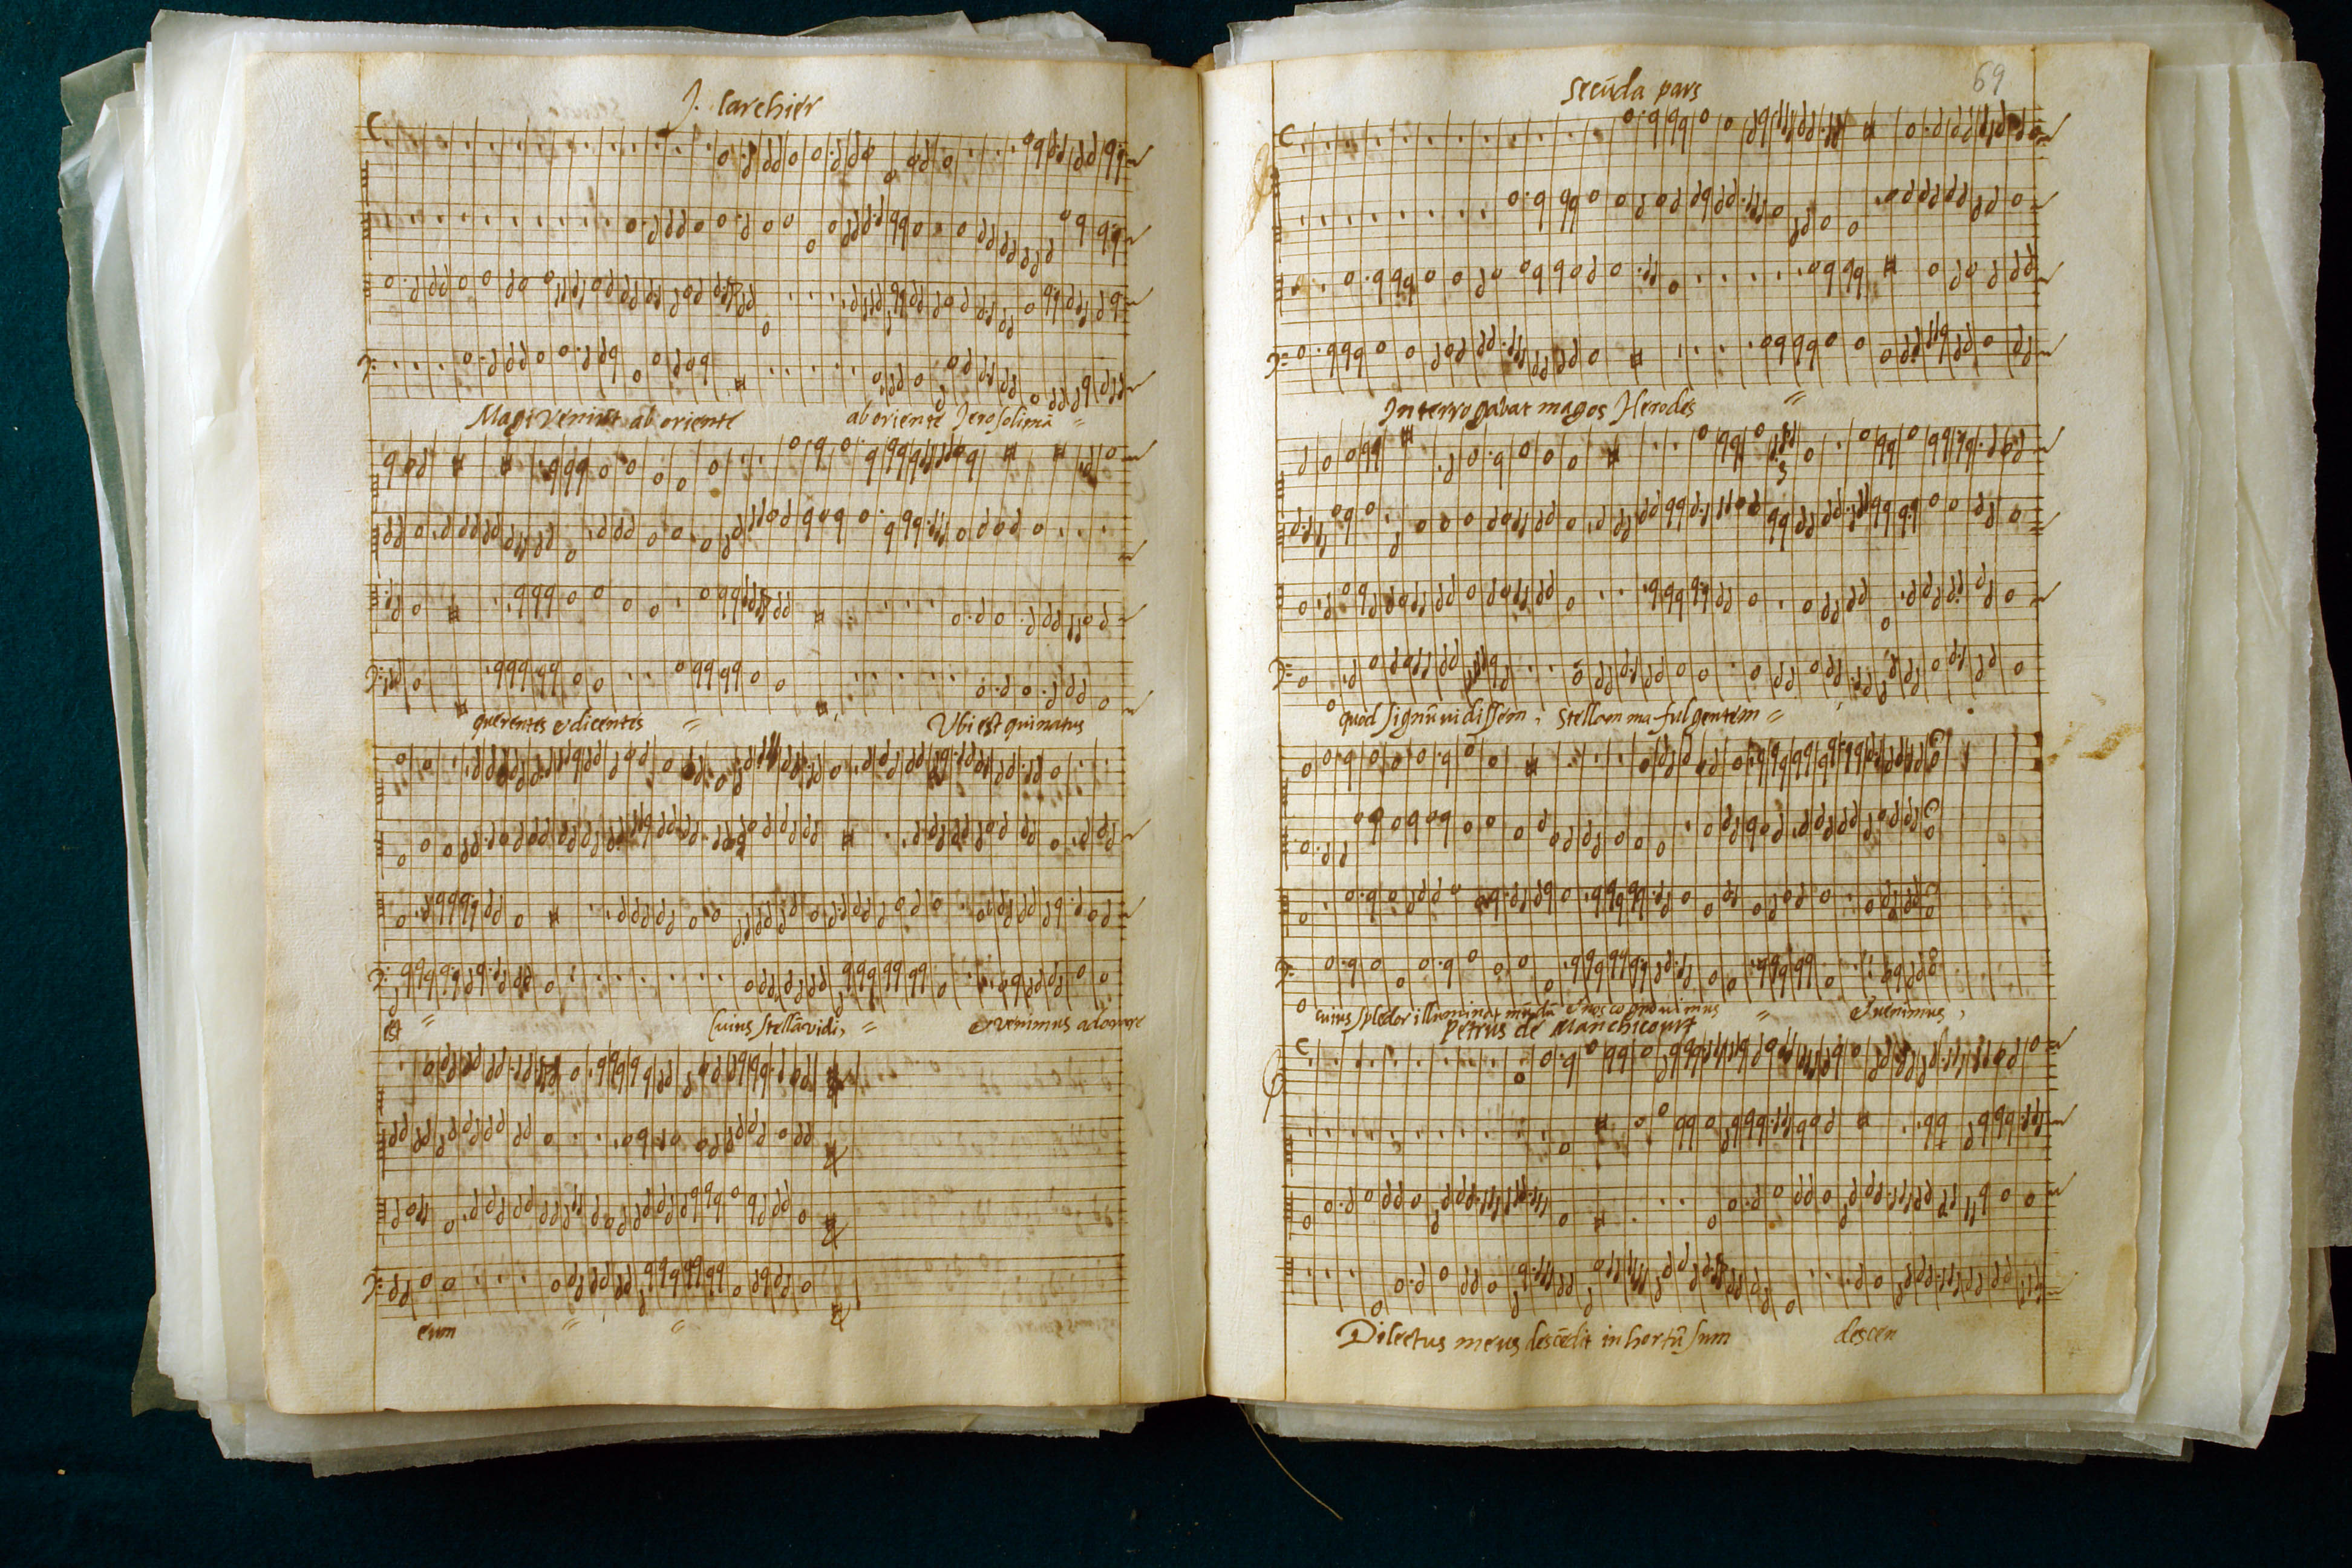 J. Larchier
Magi veniūt ab oriente ab oriente Jerosolimā =
querentes & dicentes = Ubi est qui natus
est = Cuius stellā vidi, = & venimus adorare
eum = =
Secūda pars
69
Interrogabat magos Herodes =
quod signū vidissem, stellam ma fulgentem =
cuius splēdor illuminat mūdū & nos = & venimus,
Petrus de Manchicourt
Dilectus meus descēdit in hortū sum descen